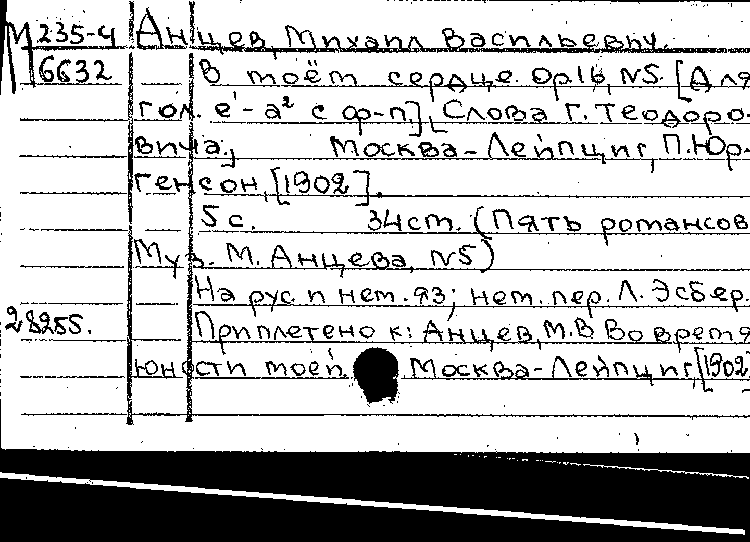 М 235-4 Анцев, Михаил Васильевич.
6632 В твоём сердце. Op16, N5. [Для
гол. e'-a² с ф-п], [Слова Г. Теодоро-
вича.], Москва-Лейпциг, П. Юр-
генсон, [1902].
5 с. 34 cm. (Пять романсов
Муз. М. Анцева, N5)
На рус. и нем. яз; нем. пер. Л. Эсбер.
28255. Приплетено к: Анцев, М.В. Во время
юности моей. Москва-Лейпциг, [1902